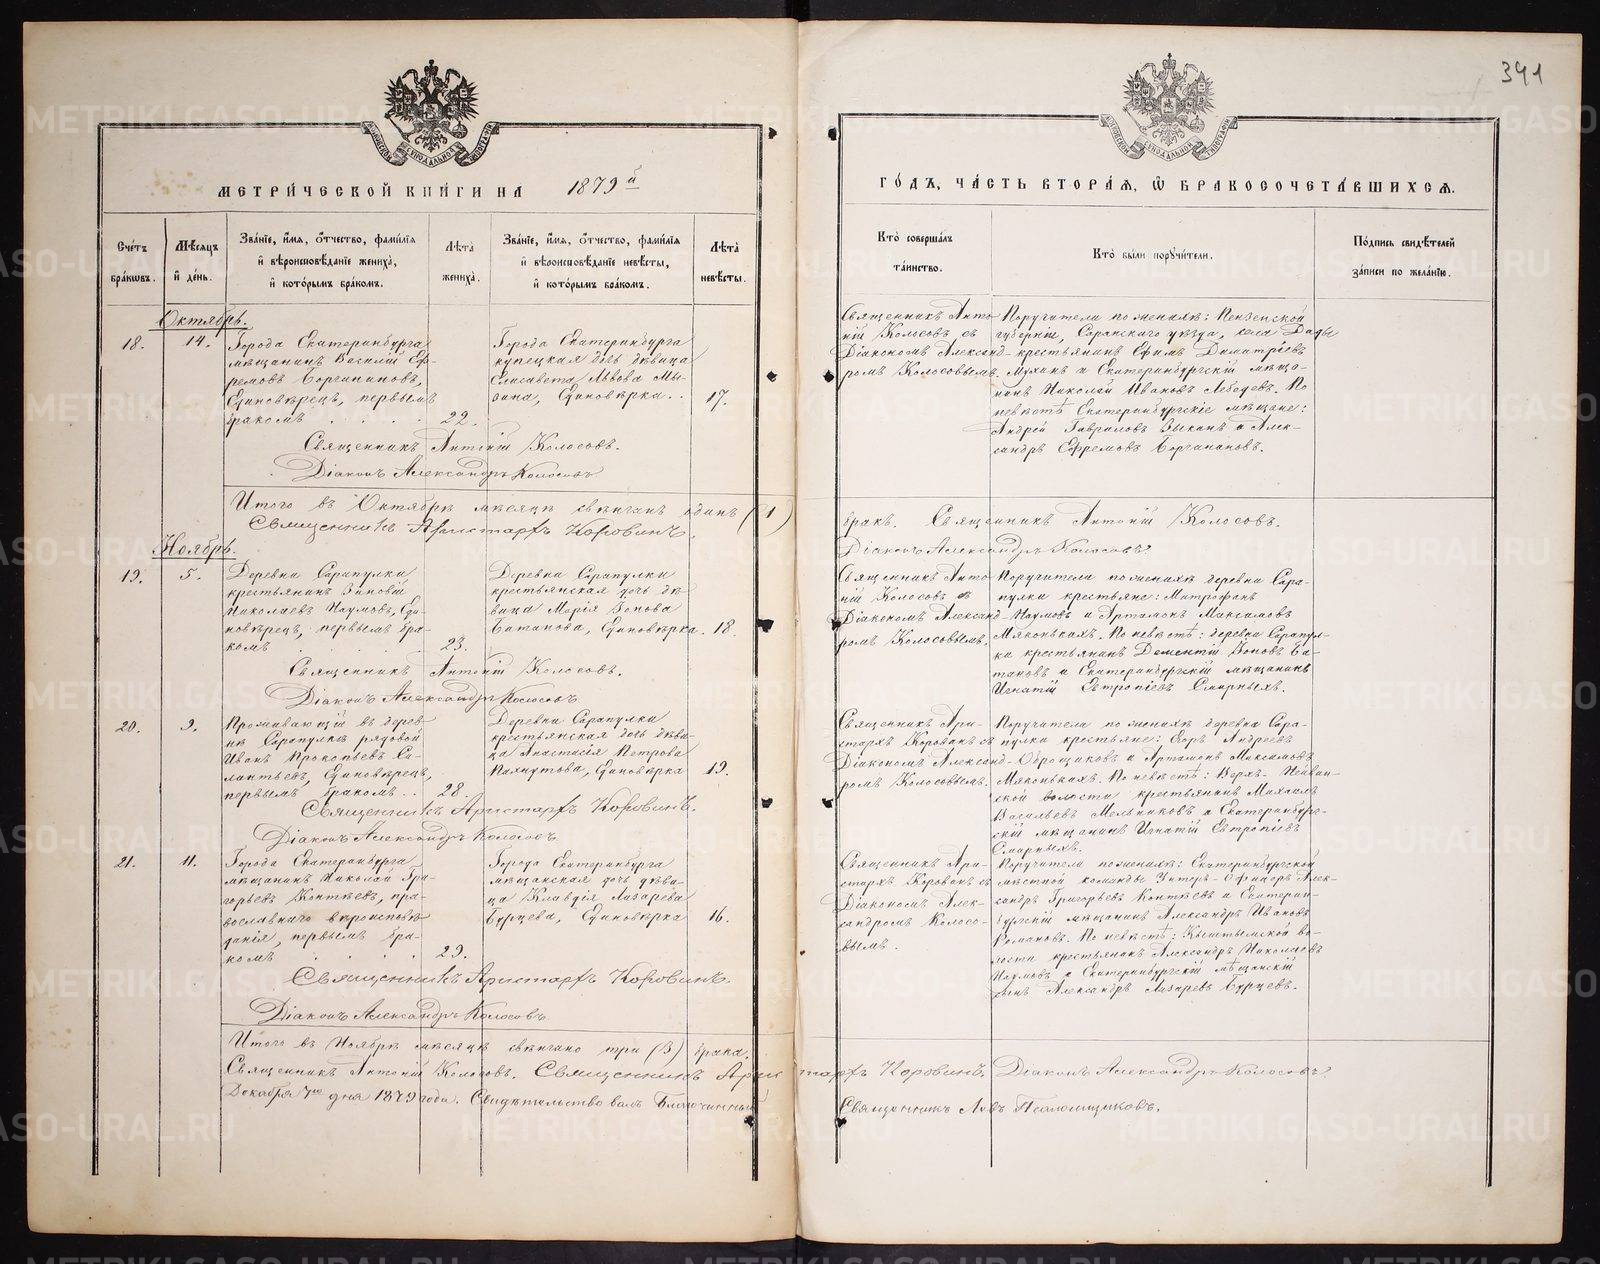 341
МЕТРИЧЕСКОЙ КНИГИ НА 1879й
ГОДЪ, ЧАСТЬ ВТОРАЯ, Ѡ БРАКОСОЧЕТАВШИХСЯ.
Счетъ браковъ.
Мѣсяцъ и день.
Званіе, имя, отчество, фамилія
и вѣроисповѣданіе жениха,
и которымъ бракомъ.
Лѣта жениха.
Званіе, имя, отчество, фамилія
и вѣроисповѣданіе невѣсты,
и которымъ бракомъ.
Лѣта невѣсты.
Кто совершалъ
таинство.
Кто были поручители.
Подпись свидѣтелей
записи по желанію.
Октябрь.
18.
14.
Города Екатеринбурга
мѣщанинъ Василій Еф-
ремовъ
Единовѣрецъ, первымъ
бракомъ
22.
Города Екатеринбурга
купеческая дочь дѣвица
Елисавета Львова
Единовѣрка.
17.
Священникъ Анто-
ній Колосовъ съ
Діакономъ Александ-
ромъ Колосовымъ.
Поручители по женихѣ: Пензенской
губерніи, Саранскаго уѣзда, села
крестьянинъ Ефимъ Димитріевъ
Мухинъ и Екатеринбургскій мѣща-
нинъ Николай Ивановъ Лебедевъ. По
невѣстѣ Екатеринбургскіе мѣщане:
Андрей Гавриловъ и Алек-
сандръ Ефремовъ
Священникъ Антоній Колосовъ.
Діаконъ Александръ Колосовъ
Итого въ Октябрѣ мѣсяцѣ вѣнчанъ одинъ (1)
бракъ. Священникъ Антоній Колосовъ.
Священникъ Аристархъ Коровинъ.
Діаконъ Александръ Колосовъ.
Ноябрь.
19.
5.
Деревни Сарапулки
крестьянинъ Зиновій
Николаевъ Наумовъ, Еди-
новѣрецъ, первымъ бра-
комъ
23.
Деревни Сарапулки
крестьянская дочь дѣ-
вица Марія Зонова
Батанова, Единовѣрка.
18.
Священникъ Анто-
ній Колосовъ съ
Діакономъ Александ-
ромъ Колосовымъ.
Поручители по женихѣ деревни Сара-
пулки крестьяне: Митрофанъ
Наумовъ и Артамонъ Максимовъ
Мякоткихъ. По невѣстѣ: деревни Сарапул-
ки крестьянинъ Дементій Зоновъ Ба-
тановъ и Екатеринбургскій мѣщанинъ
Игнатій Евтропіевъ Смирныхъ.
Священникъ Антоній Колосовъ.
Діаконъ Александръ Колосовъ
20.
9.
Проживающій въ дерев-
нѣ Сарапулкѣ рядовой
Иванъ Прокопьевъ
Единовѣрецъ,
первымъ бракомъ.
28.
Деревни Сарапулки
крестьянская дочь дѣви-
ца Анастасія Петрова
Пахнутова, Единовѣрка
19.
Священникъ Ари-
стархъ Коровинъ съ
Діакономъ Александ-
ромъ Колосовымъ.
Поручители по женихѣ деревни Сара-
пулки крестьяне: Егоръ Андреевъ
Оброщиковъ и Артамонъ Максимовъ
Мякоткихъ. По невѣстѣ: Верхъ-Нейвин-
ской волости крестьянинъ Михаилъ
Васильевъ Мельниковъ и Екатеринбург-
скій мѣщанинъ Игнатій Евтропіевъ
Смирныхъ.
Священникъ Аристархъ Коровинъ.
Діаконъ Александръ Колосовъ
21.
11.
Города Екатеринбурга
мѣщанинъ Николай Гри-
горьевъ Коптѣевъ, пра-
вославнаго вѣроисповѣ-
данія, первымъ бра-
комъ
29.
Города Екатеринбурга
мѣщанская дочь дѣви-
ца Клавдія Лазарева
Бурцева, Единовѣрка
16.
Священникъ Ари-
стархъ Коровинъ съ
Діакономъ Алек-
сандромъ Колосо-
вымъ.
Поручители по женихѣ: Екатеринбургской
мѣстной команды Унтеръ-Офицеръ Алек-
сандръ Григорьевъ Коптѣевъ и Екатерин-
бургскій мѣщанинъ Александръ Ивановъ
Романовъ. По невѣстѣ: Кыштымской во-
лости крестьянинъ Александръ Николаевъ
Наумовъ и Екатеринбургскій мѣщанскій
сынъ Александръ Лазаревъ Бурцевъ.
Священникъ Аристархъ Коровинъ.
Діаконъ Александръ Колосовъ
Итого въ Ноябрѣ мѣсяцѣ вѣнчано три (3) брака.
Священникъ Антоній Колосовъ. Священникъ Аристархъ Коровинъ. Діаконъ Александръ Колосовъ.
Декабря 7го дня 1879 года. Свидѣтельствовалъ Благочинный
Священникъ Левъ Псаломщиковъ.
METRIKI.GASO-URAL.RU